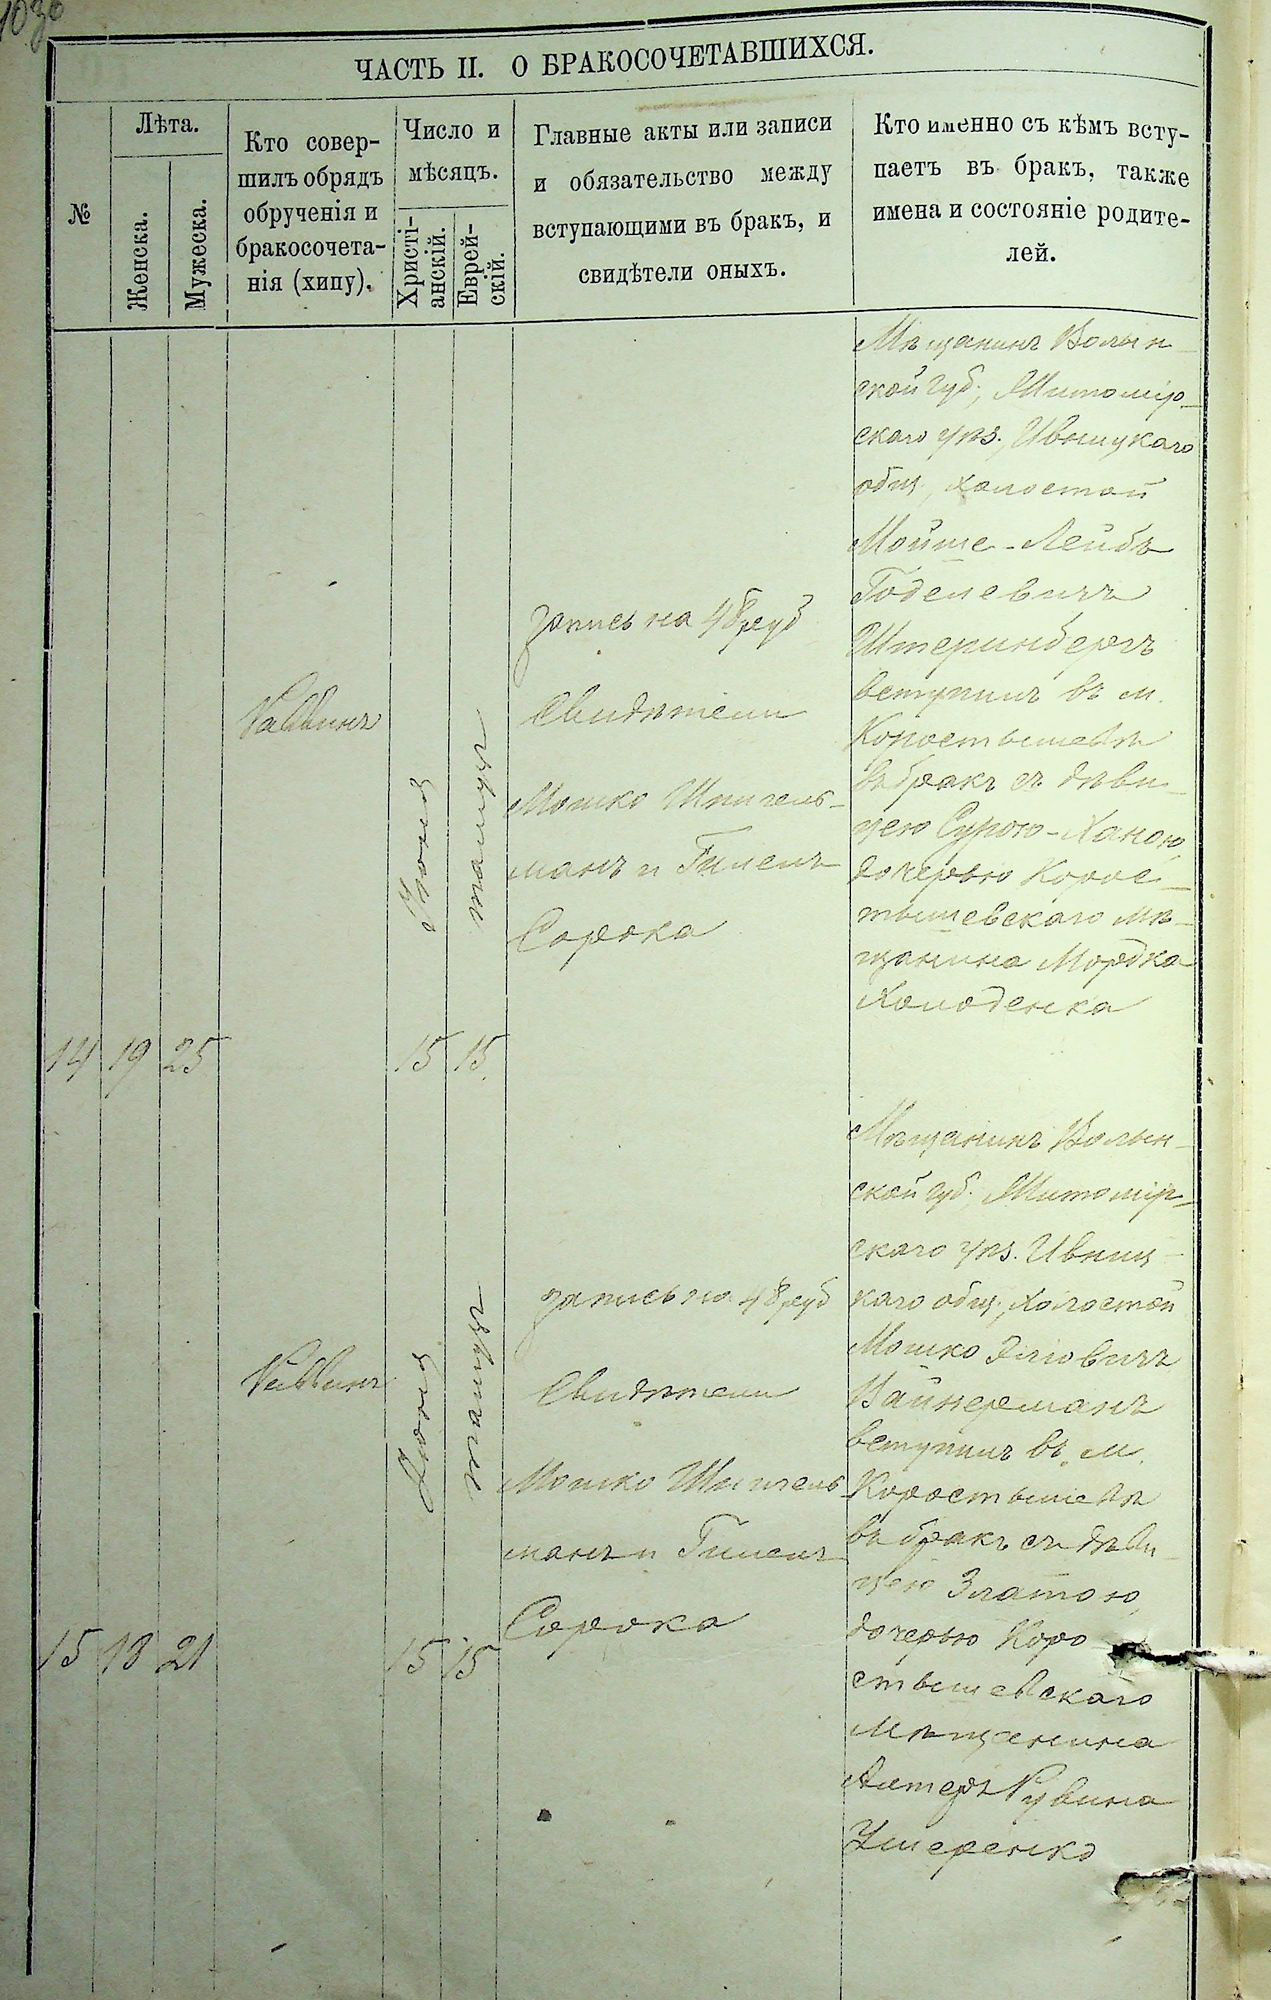 1030
ЧАСТЬ II. О БРАКОСОЧЕТАВШИХСЯ.
№
Лѣта.
Женска.
Мужеска.
Кто совер-
шилъ обрядъ
обрученія и
бракосочета-
нія (хипу).
Число и
мѣсяцъ.
Христі-
анскій.
Еврей-
скій.
Главные акты или записи
и обязательство между
вступающими въ бракъ, и
свидѣтели оныхъ.
Кто именно съ кѣмъ всту-
паетъ въ бракъ, также
имена и состояніе родите-
лей.
14
19
25
Раввинъ
Іюня
15
тамуз
15
запись на 48 руб
Свидѣтели
Мошко Шпигель-
манъ и Гилелъ
Сорока
Мѣщанинъ Волын-
ской губ, Житомір-
скаго уѣз. Ивницкаго
общ, холостой
Мойше-Лейбъ
Годелевичъ
Штеринбергъ
вступилъ въ м.
Коростышевѣ
въ бракъ съ дѣви-
цею Сурою-Ханою,
дочерью Корос-
тышевскаго мѣ-
щанина Мордка
Холоденка
15
18
21
Раввинъ
Іюня
15
тамуз
15
запись на 48 руб
Свидѣтели
Мошко Шпигель-
манъ и Гилелъ
Сорока
Мѣщанинъ Волын-
ской губ. Житомір-
скаго уѣз. Ивниц-
каго общ, холостой
Мошко Эліовичъ
Вайнерманъ
вступилъ въ м.
Коростышевѣ
въ бракъ съ дѣви-
цею Златою,
дочерью Коро
стышевскаго
мѣщанина
Алтеръ Рувина
Ушеренко